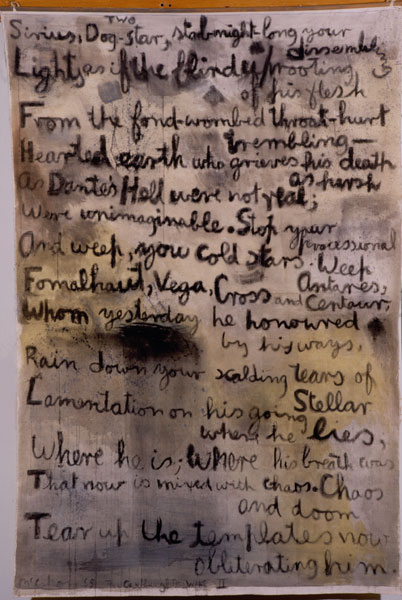 TWO
Sirius, Dog-star, stab night-long your
dissembling
Lights, as if the
rooting
of his flesh
From the fond-wombed throat-hurt
trembling-
Hearted earth who grieves his death
as harsh
As Dante's Hell were not real;
Were unimaginable. Stop your
processional
And weep, you cold stars. Weep
Antares,
Fomalhaut, Vega, Cross and Centaur,
Whom yesterday he honoured
by his ways,
Rain down your scalding tears of
Stellar
Lamentation on his going
where he lies,
Where he is; Where his breath was
That now is mixed with chaos. Chaos
and doom
Tear up the templates now
obliterating him.